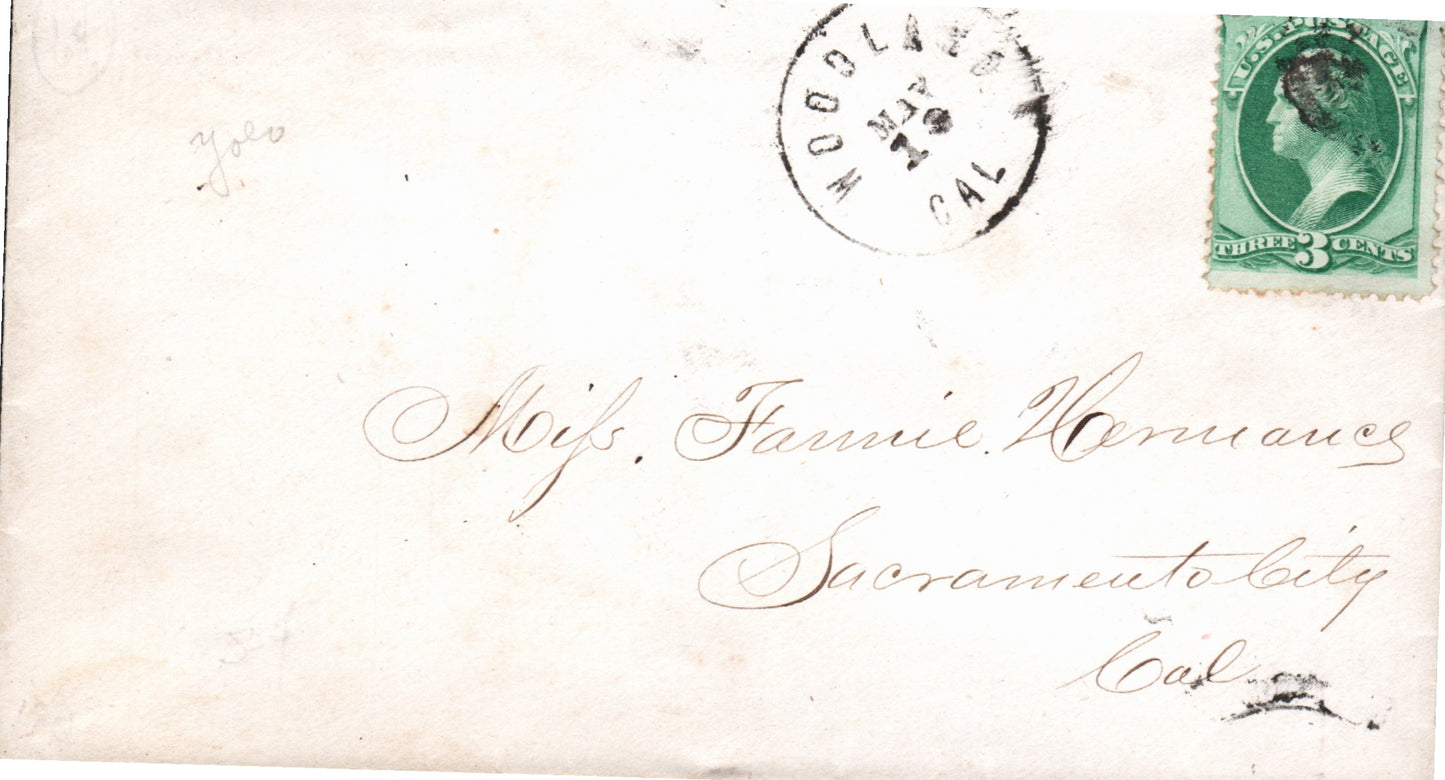 WOODLAND
MAY
19
CAL
U.S. POSTAGE
THREE 3 CENTS
Yolo
Miss. Fannie. Hermance
Sacramento City
Cal